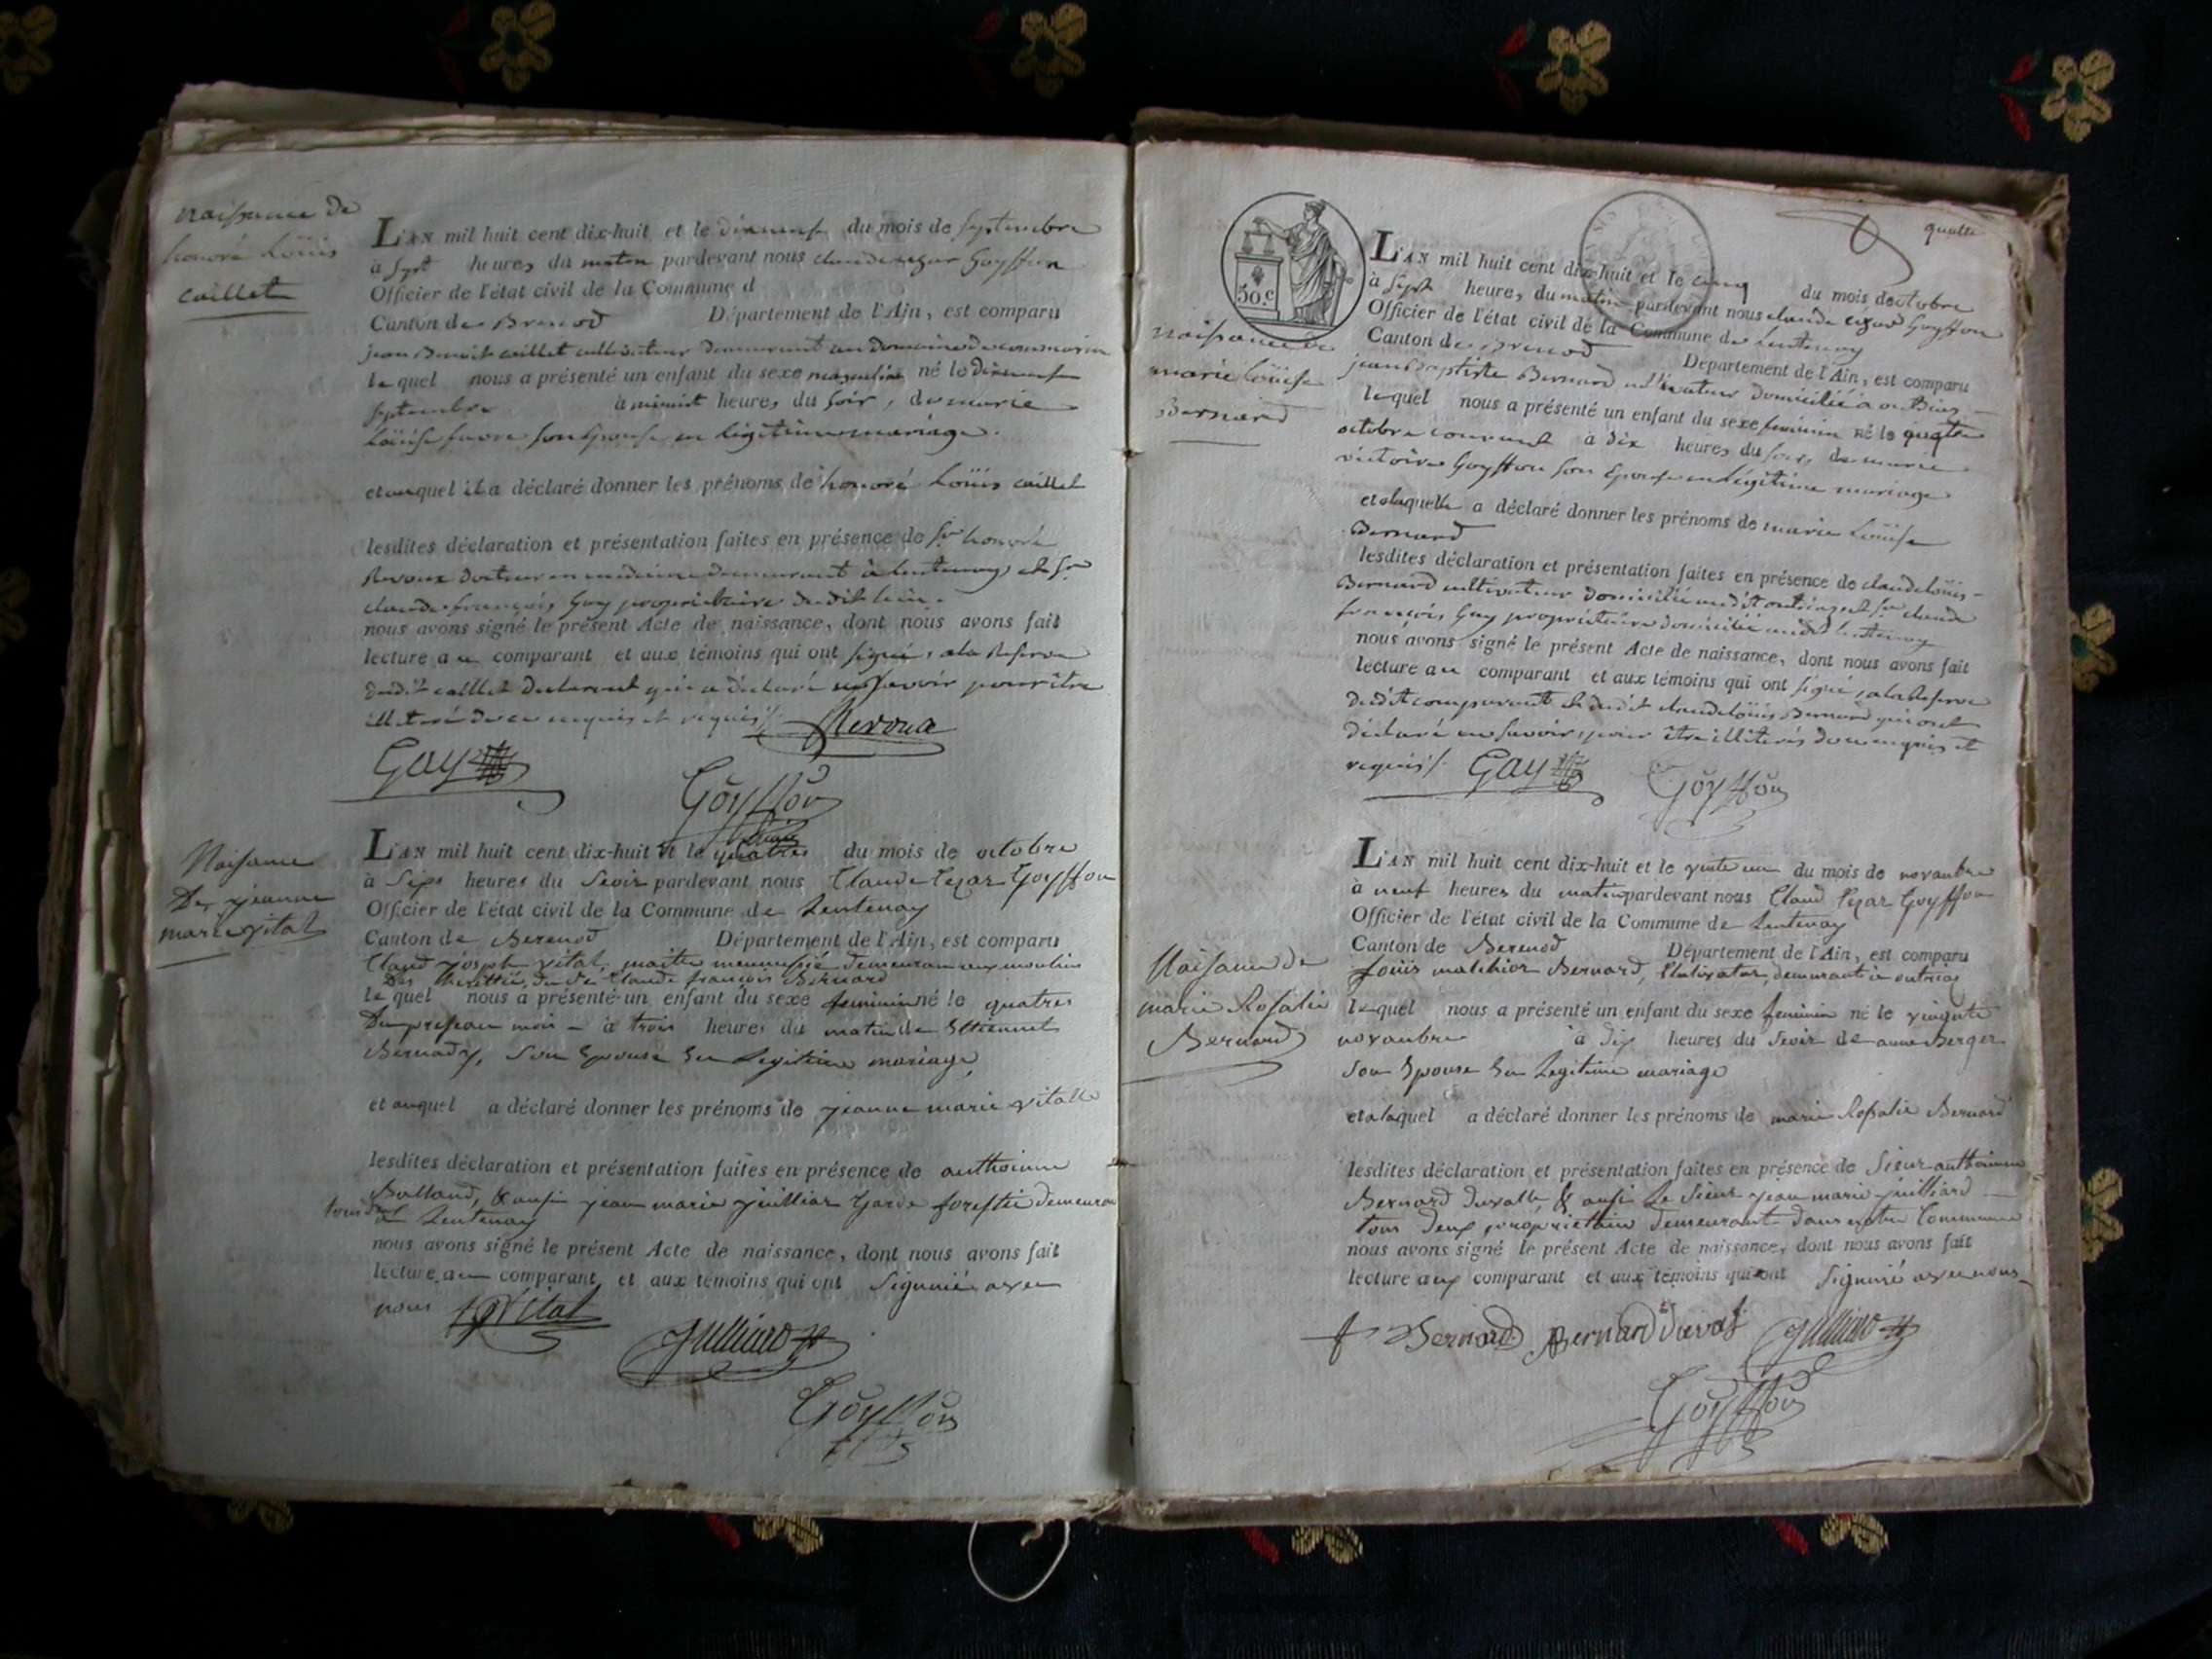 naissance de
honoré Loüis
caillet
L'AN mil huit cent dix-huit et le dixneuf du mois de septembre
à sept heures du matin pardevant nous claude cezar Goyffon
Officier de l'état civil de la Commune d
Canton de Brenod Département de l'Ain, est comparu
jean Benoit caillet cultivateur demeurant au Domaine de
lequel nous a présenté un enfant du sexe masculin né le dixneuf
septembre à minuit heures du soir, de marie
Loüise favre son Epouse en légitime mariage.
et auquel il a déclaré donner les prénoms de honoré Loüis caillet
lesdites déclaration et présentation faites en présence de Sr honoré
docteur en médecine demeurant à lentenay, et Sr
claude françois Gay propriétaire dudit lieu.
nous avons signé le présent Acte de naissance, dont nous avons fait
lecture au comparant et aux témoins qui ont signé, a la Reserve
dudit caillet declarant qui a déclaré ne savoir pour être
illiteré de ce enquis et requis /.
GAY
Goyffon
Naisance
De jeanne
marie vital
L'AN mil huit cent dix-huit et le quatres du mois de octobre
à Sept heures du Sevoir pardevant nous Claude Cezar Goyffon
Officier de l'état civil de la Commune de Lentenay
Canton de Berenod Département de l'Ain, est comparu
Claud joseph vital, maitre menusié demeurant aux moulins
Des du dit Claude françois Bernard
lequel nous a présenté un enfant du sexe feminin né le quatres
Du presean mois à trois heures du matin de Ettiennet
Bernady, Son Epouse En Legitime mariage,
et auquel a déclaré donner les prénoms de jeanne marie vitalle
lesdites déclaration et présentation faites en présence de anthoinne
Balland, & ausi jean marie juilliar Garde forestié demeuran
tous deux a Lentenay
nous avons signé le présent Acte de naissance, dont nous avons fait
lecture au comparant et aux témoins qui ont Signué avec
nous Vital
Julliard
Goyffon
quatre
50.c
naissance de
marie Loüise
Bernard
L'AN mil huit cent dix-huit et le cinq du mois doctobre
à sept heures du matin pardevant nous claude cezar Goyffon
Officier de l'état civil de la Commune de Lentenay
Canton de Brenod Département de l'Ain, est comparu
jean Baptiste Bernard cultivateur domicilié a outriaz
lequel nous a présenté un enfant du sexe feminin né le quatre
octobre courant à dix heures du soir, de marie
victoire Goyffon son Epouse en légitime mariage
et a laquelle a déclaré donner les prénoms de marie Loüise
Bernard
lesdites déclaration et présentation faites en présence de claude loüis
Bernard cultivateur domicilié audit outriaz et Sr claude
françois Gay propriétaire domicilié audit lentenay
nous avons signé le présent Acte de naissance, dont nous avons fait
lecture au comparant et aux témoins qui ont signé, a la Reserve
dudit comparant et dudit claude loüis Bernard qui ont
déclaré ne savoir, pour être illiterés de ce enquis et
requis /. GAY Goyffon
Naisance de
marie Rosalie
Bernard
L'AN mil huit cent dix-huit et le vinte une du mois de novanbre
à neuf heures du matin pardevant nous Claud Cezar Goyffon
Officier de l'état civil de la Commune de Lentenay
Canton de Berenod Département de l'Ain, est comparu
Louis malchior Bernard, Cultivatar, demeurant a outriaz
lequel nous a présenté un enfant du sexe feminin né le vingnte
novanbre à dix heures du Sevoir de anne Berger
Son Epouse En Legitime mariage
et a laquel a déclaré donner les prénoms de marie Rosalie Bernard
lesdites déclaration et présentation faites en présence de Sieur anthoinne
Bernard Duvalle & ausi Le Sieur jean marie juilliard
tous deux propriettaire demeurant dans notre Commune
nous avons signé le présent Acte de naissance, dont nous avons fait
lecture aux comparant et aux témoins qui ont Signué avec nous
Bernard Bernard duval Julliard
Goyffon